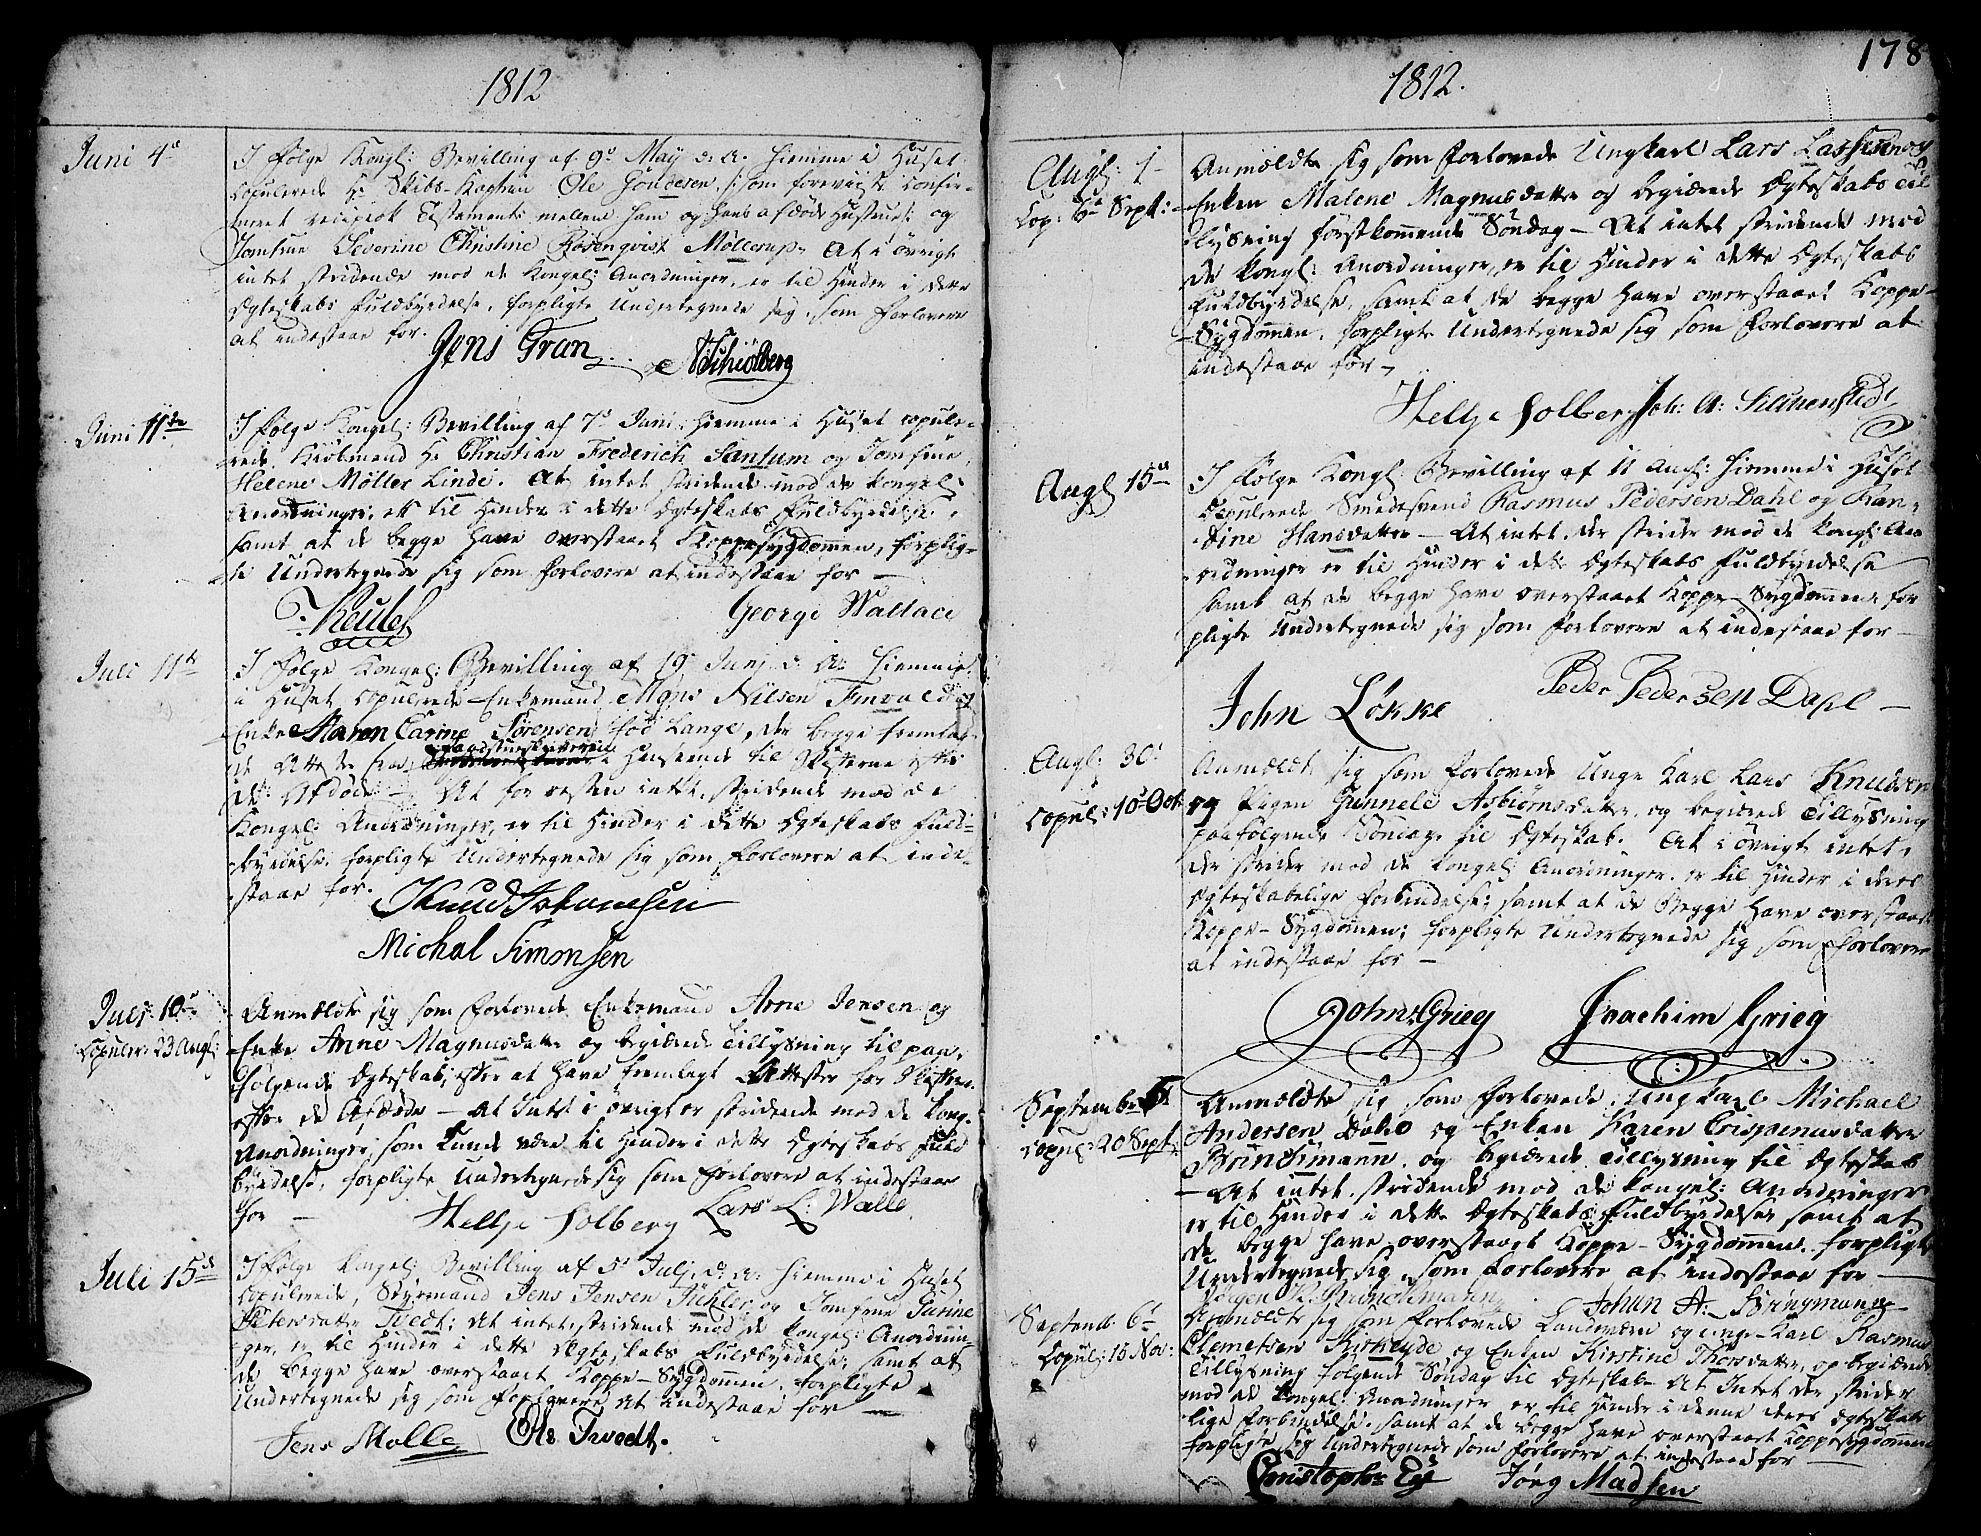 1812
Juni 4de
I følge Kongl: Bevilling af 9de May d. A. hiemme i Huset
Copulerede Hr Skibs-Captain Ole Gundesen, /: som foreviiste Confir-
meret reciprok Testamente mellem ham og hans afdøde Hustrue :/ og
Jomfrue Severine Christine Rosenqvist Møllerup. At i øvrigt
intet stridende mod de Kongel: Anordninger, er til Hinder i dette
Ægteskabs Fuldbyrdelse, forpligte Undertegnede sig, som Forlovere
at indestaae for.
Jens Gran
Juni 11te
I følge Kongel: Bevilling af 7de Juni, hiemme i Huset copule-
rede Kiøbmand Hr Christian Frederich Santum og Jomfrue
Helene Møller Linde. At intet stridende mod de Kongel:
Anordninger, er til Hinder i dette Ægteskabs Fuldbyrdelse,
samt at de begge have overstaaet Koppesygdommen, forplig-
te Undertegnede sig som Forlovere at indestaae for —
George Wallace
Juli 11te
I følge Kongel: Bevilling af 19de Junj d. A: hiemme
i Huset copulerede Enkemand Mons Nilsen Finvaldog
Enke Maren Carine Sørensen, fød Lange, der begge fremlag-
de Atteste fra i Henseende til Skifterne efter
de Afdøde — At for resten intet, stridende mod de
Kongel: Anordninger, er til Hinder i dette Ægteskabs Fuld-
byrdelse, forpligte Undertegnede sig som Forlovere at inde-
staae for.
Knud Johannesen
Michal Simonsen
Julj 10de
Copuler: 23 Augl:
Anmældte sig som Forlovede Enkemand Arne Jensen og
Enke Anne Magnusdatter og begiærede Tillysning til paa-
følgende Ægteskab, efter at have fremlagt Attester for Skiftene
efter de Afdøde — At Intet i øvrigt er stridende mod de Kong.
Anordninger, som kunde være til Hinder i dette Ægteskabs Fuld
byrdelse, forpligte Undertegnede sig som Forlovere at indestaae
for —
Hellje Solberg Lars L: Walle
Juli 15de
I følge Kongel: Bevilling af 5de Julj d. A. hiemme i Huset
Copulerede, Styrmand Jens Jensen Fichler og Jomfrue Karine
Petersdatter Tvedt; At intet, stridende mod de Kongel: Anordnin-
ger, er til Hinder i dette Ægteskabs Fuldbyrdelse, samt at
de begge have overstaaet Koppe-Sygdommen, forpligte
Undertegnede sig som Forlovere at indestaae for —
Jens Molle Ole Tvedt.
178
1812.
Augl: 1
Cop: 6te Sept:
Anmældte sig som Forlovede Ungkarl Lars Lassesen og
Enken Malene Magnusdatter og begiærede Ægteskabs Til
lysning førstkommende Søndag — At intet stridende mod
de Kongl: Anordninger, er til Hinder i dette Ægteskabs
Fuldbyrdelse, samt at de begge have overstaaet Koppe-
Sygdommen, forpligte Undertegnede sig som Forlovere at
indestaae for —
Hellje Solberg Joh: A:
Augl 15de
I følge Kongl: Bevilling af 11 Augl: hiemme i Huset
Copulerede Smedesvend Rasmus Pedersen Dahl og Kan-
dine Hansdatter — At intet, der strider mod de Kongl: An
ordninger er til Hinder i dette Ægteskabs Fuldbyrdelse
samt at de begge have overstaaet Koppe-Sygdommen, for
pligte Undertegnede sig som Forlovere at indestaae for —
John Løkke Peder Pedersen Dahl
Augl: 30te
Copul: 10de Oct:
Anmældte sig som Forlovede Unge Karl Lars Knudsen
og Pigen Gunnele Asbiørnsdatter, og begiærede Tillysning
paafølgende Søndage til Ægteskab. At i øvrigt intet,
der strider mod de Kongel: Anordninger, er til Hinder i deres
Ægteskabelige Forbindelse, samt at de Begge have overstaaet
Koppe-Sygdommen; forpligte Undertegnede sig som Forlovere
at indestaae for —
John Grieg Joachim Grieg
September
Copul: 20 Sept:
Anmældte sig som Forlovede, Ungkarl Michael
Andersen Dahl og Enken Karen Crispinusdatter
Brinchmann, og begiærede Tillysning til Ægteskab
— At intet, stridende mod de Kongel: Anordninger
er til Hinder i dette Ægteskabs Fuldbyrdelse, samt at
de begge have overstaaet Koppe-Sygdommen, forpligte
Undertegnede sig, som Forlovere at indestaae for —
Johan A:
Septemb: 6te
Copul: 18 Nov:
Anmældte sig som Forlovede Landeværn og unge Karl Rasmus
Clemetsen Kirkeyde og Enken Kirstine Thorsdatter, og begiærede
Tillysning følgende Søndag til Ægteskab. At Intet der strider
mod de Kongel: Anordninger er til Hinder i denne deres Ægteskabe-
lige Forbindelse, samt at de begge have overstaaet Koppesygdommen
forpligte sig Undertegnede som Forlovere at indestaae for —
Christopher Jørg Madsen